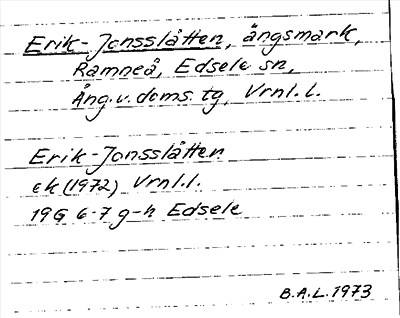 Erik-Jonsslåtten, ängsmark,
Ramneå, Edsele sn,
Ång.v.doms.tg, Vrnl.l.
Erik-Jonsslåtten
ek (1972) Vrnl.l.
19G 6-7 g-h Edsele
B.A.L. 1973